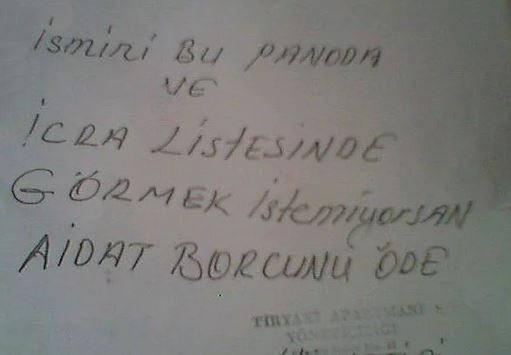 ismini BU PANODA
VE
İCRA LİSTESİNDE
GÖRMEK istemiyorsan
AİDAT BORCUNU ÖDE
TİRYAKİ APARTMANI
YÖNETİCİLİĞİ